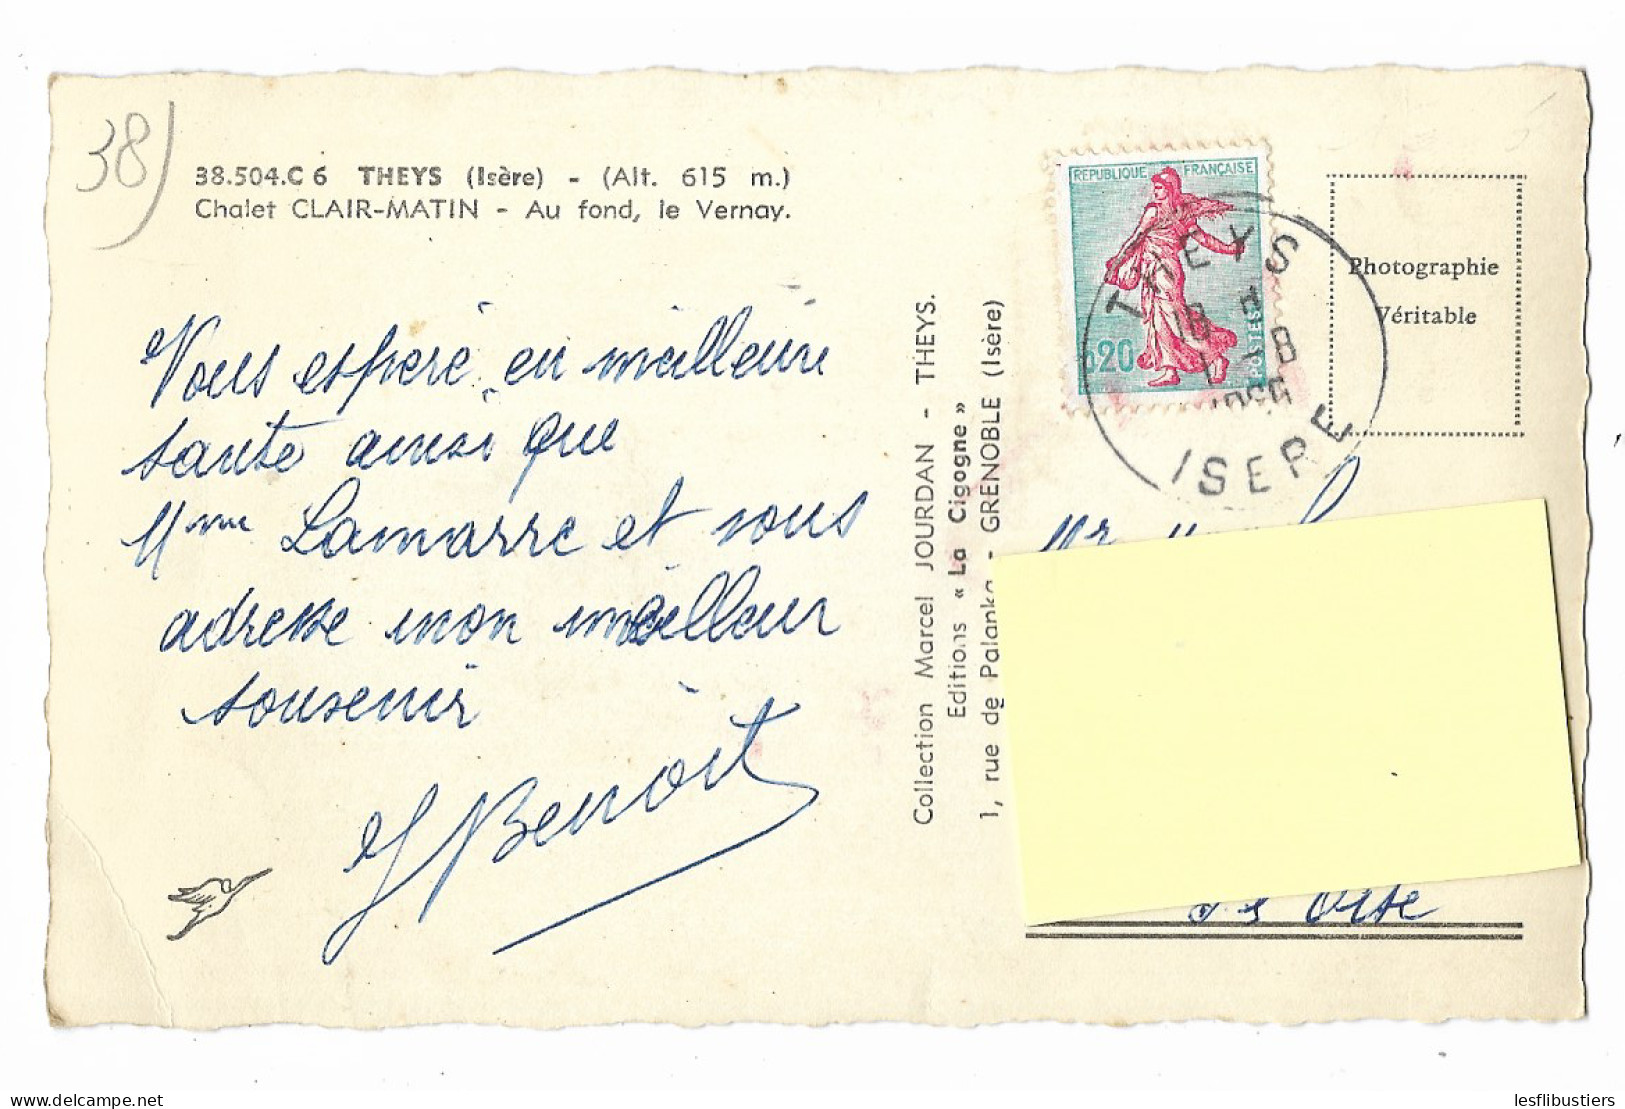 38)
38.504.C 6 THEYS (Isère) - (Alt. 615 m.)
Chalet CLAIR-MATIN - Au fond, le Vernay.
Vous espere en meilleure
sante ainsi que
Mme Lamarre et vous
adresse mon meilleur
souvenir
J Benoit
Collection Marcel JOURDAN - THEYS.
Editions « La Cigogne »
1, rue de Palanka - GRENOBLE (Isère)
REPUBLIQUE FRANÇAISE
0,20
POSTES
THEYS
18 H
-8
ISERE
Photographie
Véritable
Mr
Oise
delcampe.net
lesflibustiers